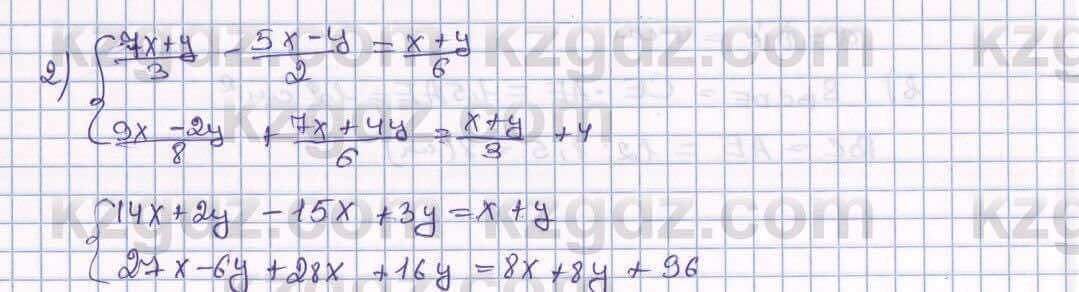 2) { (7x+y)/3 - (5x-y)/2 = (x+y)/6
{ (9x-2y)/8 + (7x+4y)/6 = (x+y)/3 + 4
{ 14x+2y - 15x + 3y = x + y
{ 27x - 6y + 28x + 16y = 8x + 8y + 96
kzgdz.com